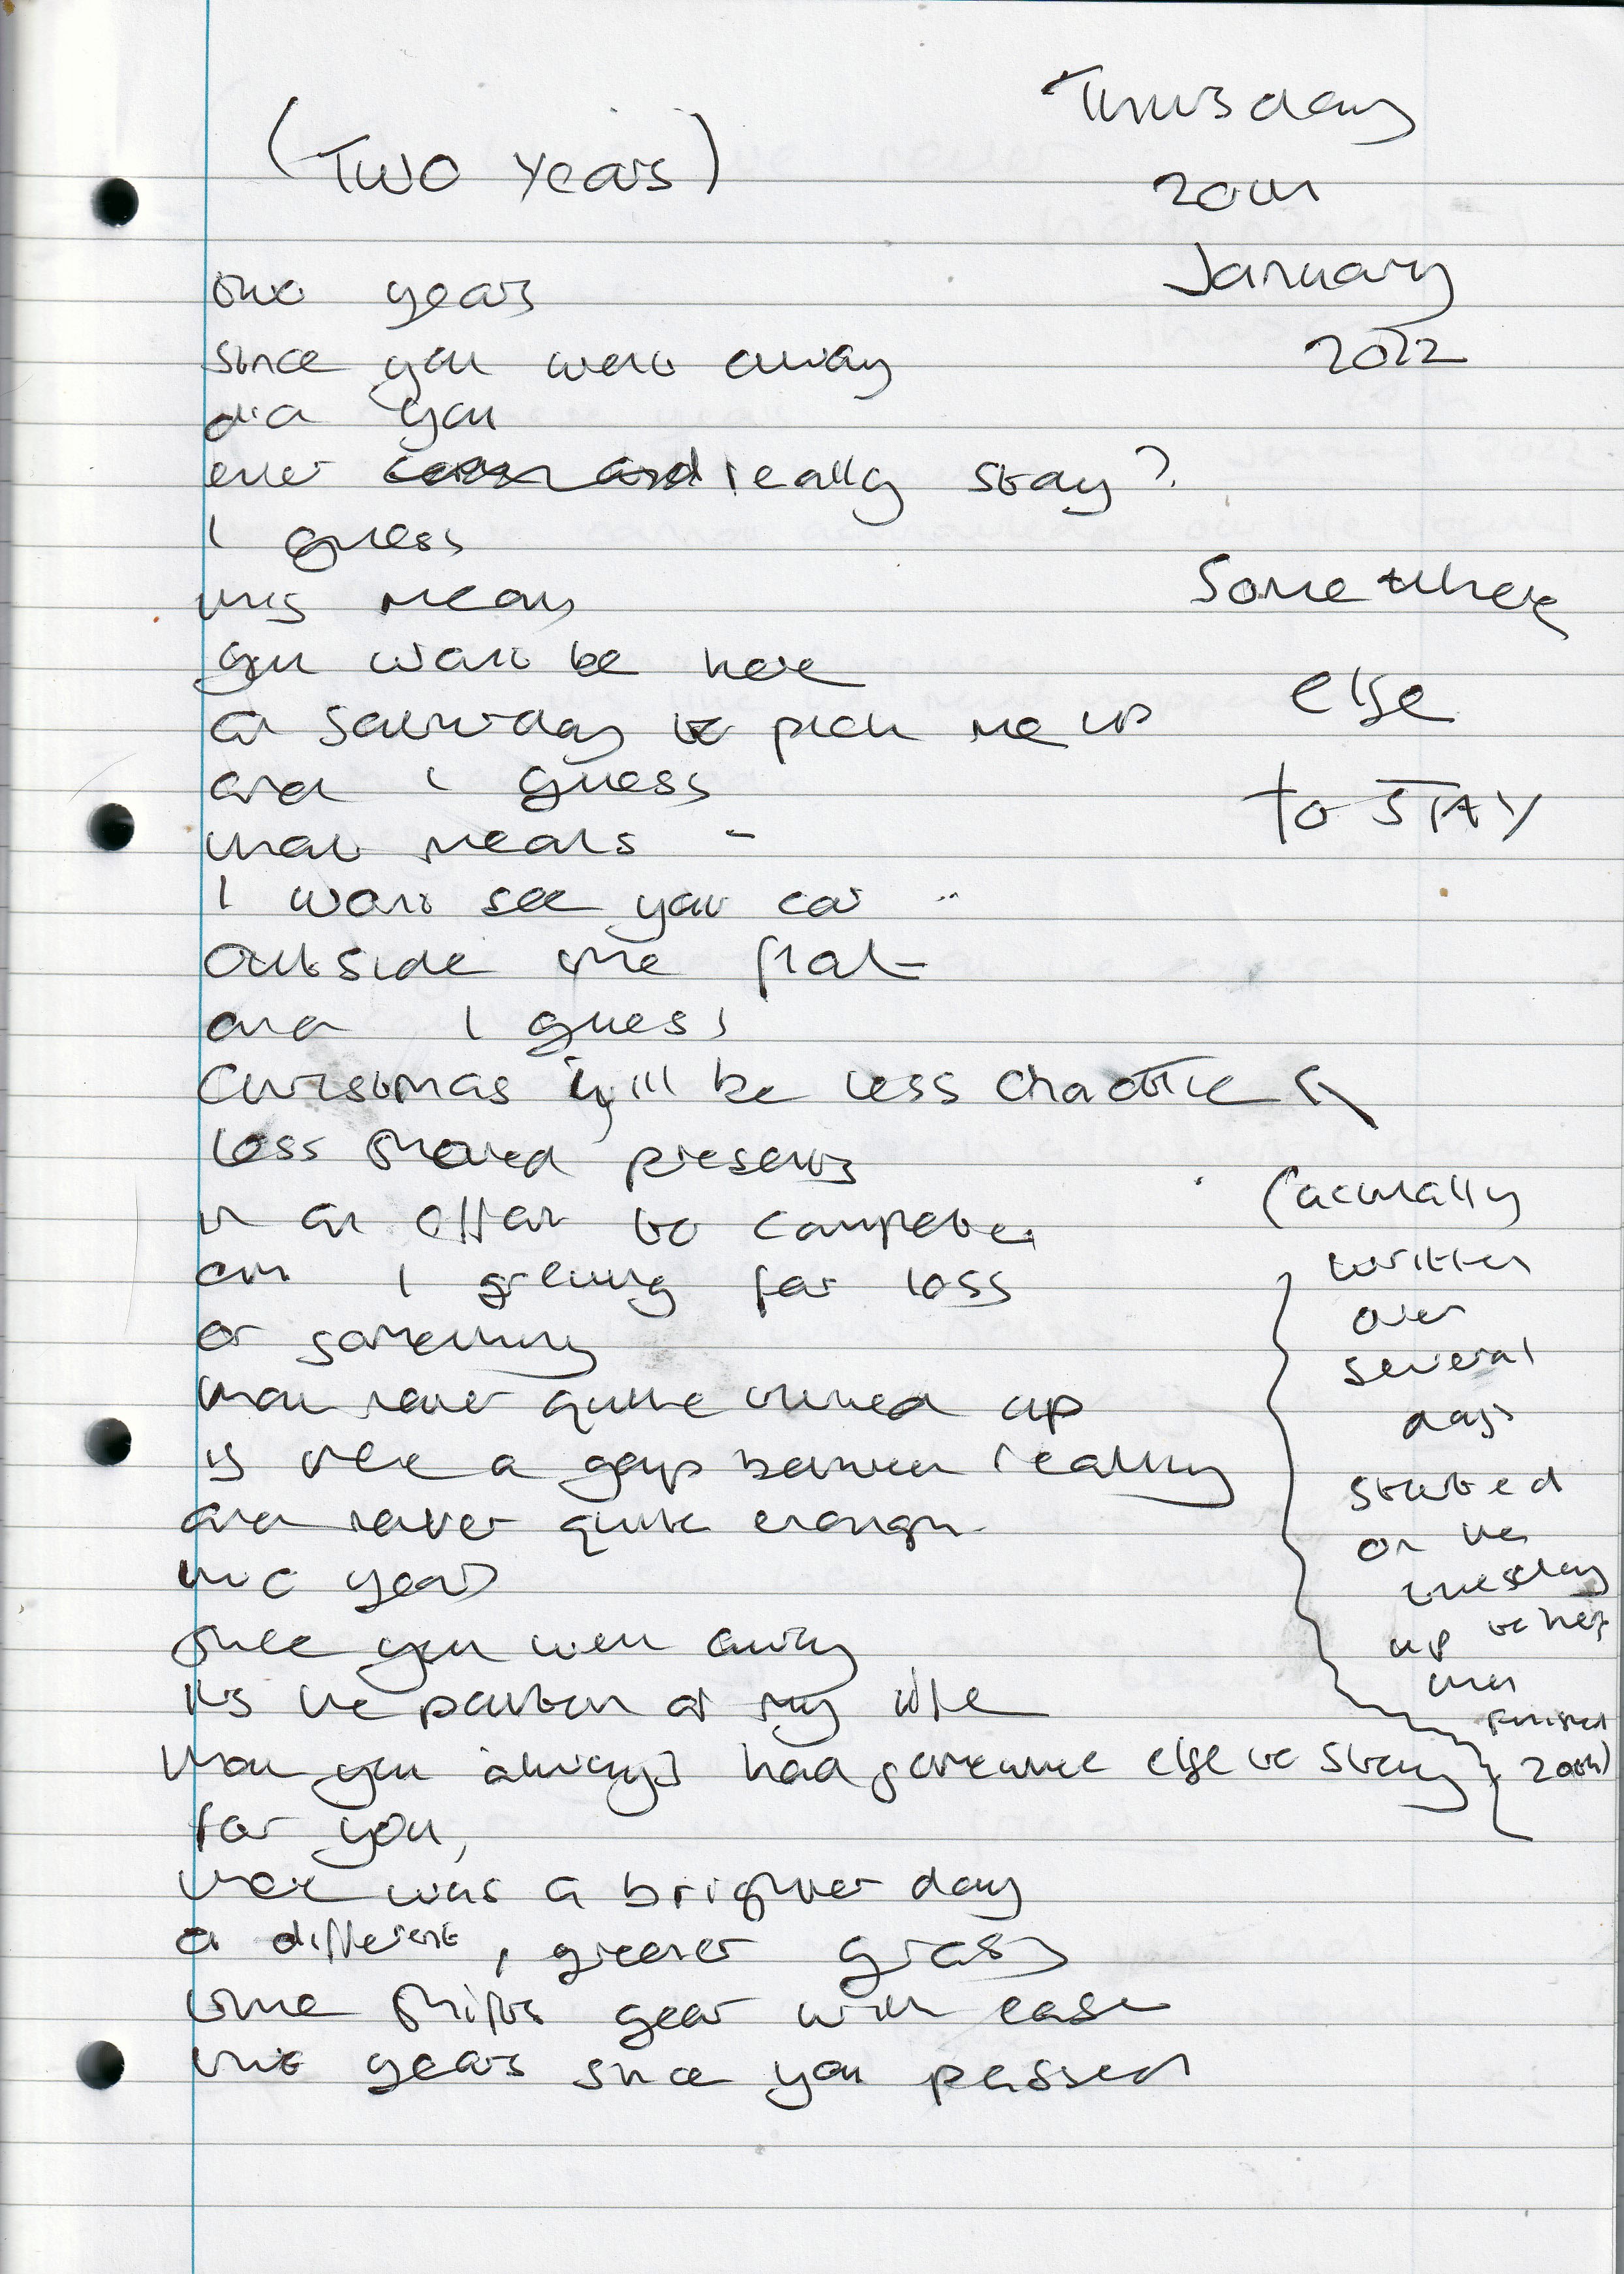 (Two Years)
Thursday
20th
January
2022
two years
since you went away
did you
ever really stay?
I guess
this means
you wont be here
on Saturday to pick me up
and I guess
that means -
I wont see your car
outside the flat
and I guess
Christmas will be less chaotic &
less shared presents
in an effort to compete.
am I grieving for loss
or something
that never quite turned up
is there a gap between reality
and never quite enough.
two years
since you went away
its the pattern of my life
that you always had somewhere else to stay
for you,
there was a brighter day
a different, greener grass
time shifts gear with ease
two years since you passed
Somewhere
else
to STAY
(actually
written
over
several
days
started
on the
tuesday
up to here
then
finished
20th)